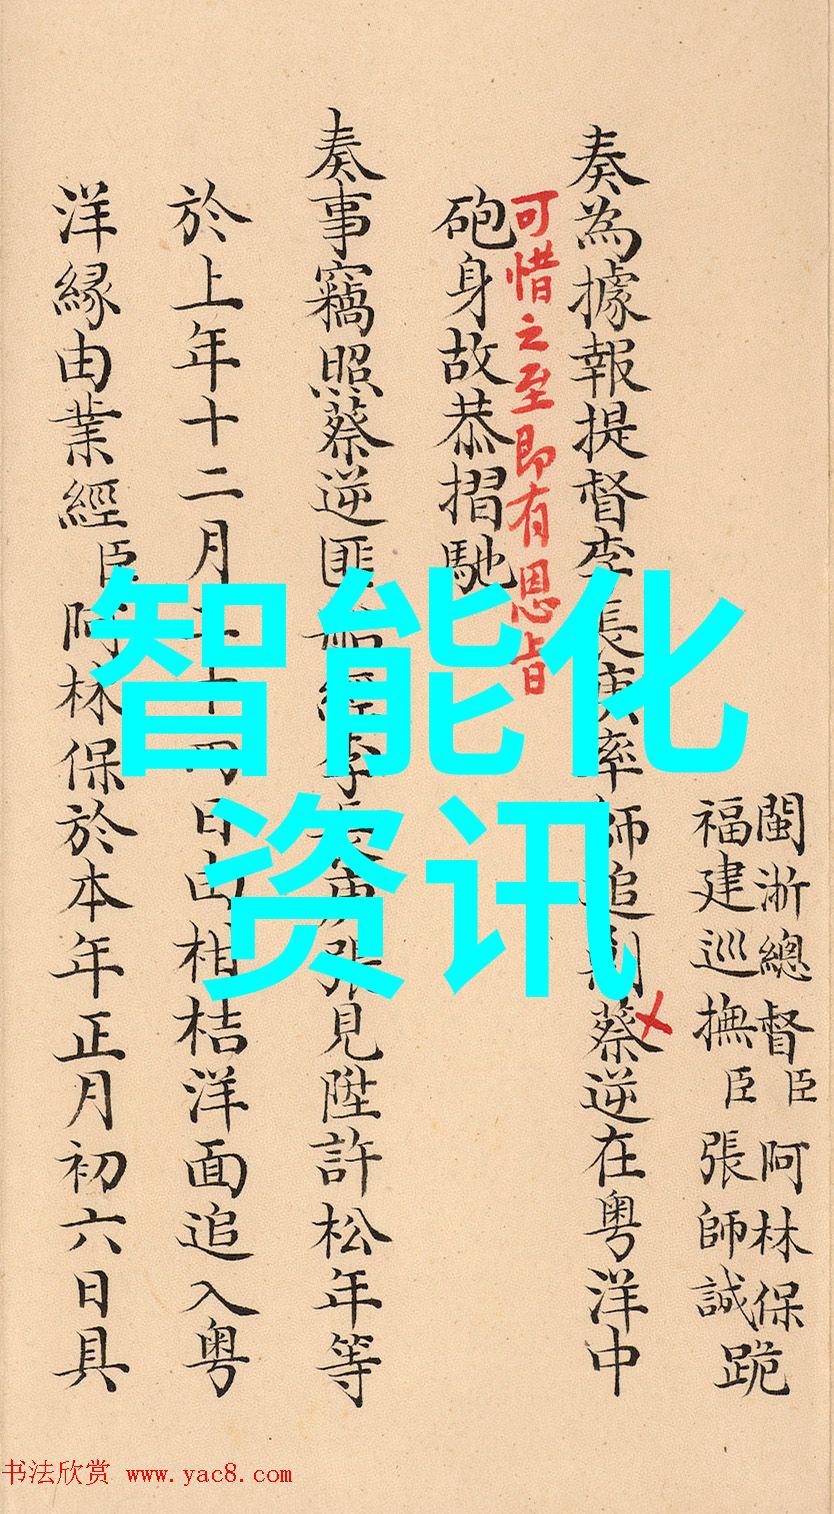 閩浙總督臣阿林保
福建巡撫臣張師誠跪
奏為據報提督李長庚率師追剿蔡逆在粵洋中
可惜之至即有恩旨
砲身故恭摺馳
奏事竊照蔡逆匪船經李長庚張見陞許松年等
於上年十二月二十四日由柑桔洋面追入粵
洋緣由業經臣阿林保於本年正月初六日具
智能化
资讯
书法欣赏 www.yac8.com